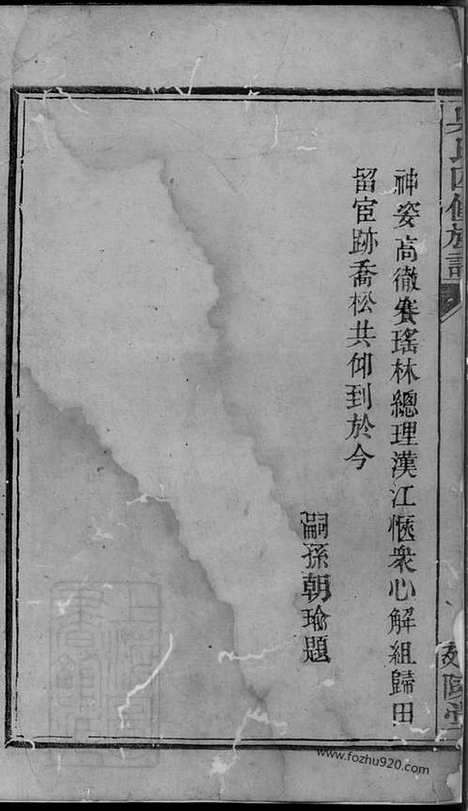 吳氏四修族譜
神姿高徹賽瑤林總理漢江愜衆心解組歸田
留宦跡喬松共仰到於今
嗣孫朝瑜題
www.fozhu920.com